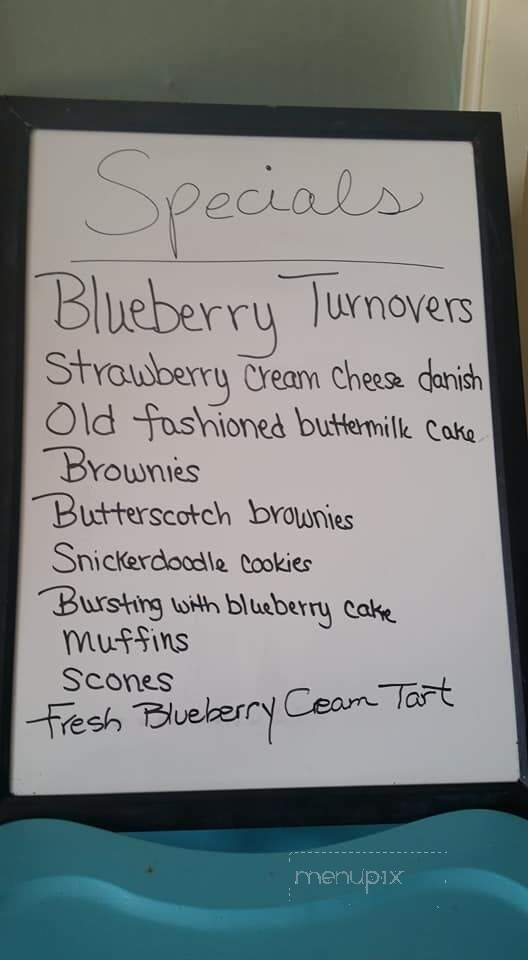 Specials
Blueberry Turnovers
Strawberry Cream Cheese danish
Old fashioned buttermilk cake
Brownies
Butterscotch brownies
Snickerdoodle cookies
Bursting with blueberry cake
muffins
scones
Fresh Blueberry Ceam Tart
menupix